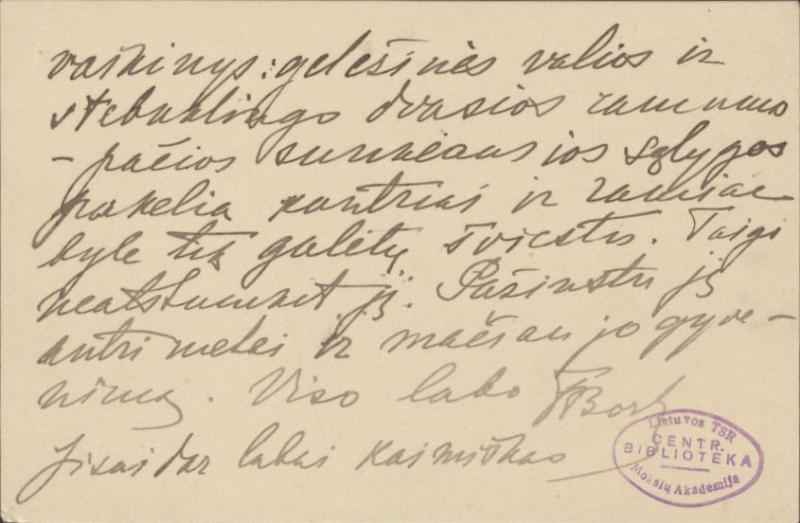 vaikinys: geležinės valios ir
stebuklingo dvasios ramumo
– pačios sunkiausios sąlygos
pakelia kantriai ir ramiai
byle tik galėtų šviestis. Taigi
neatstumkit jį. Pažinstu jį
antri metai ir mačiau jo gyve-
nimą. Viso labo
Jisai dar labai kaimiškas
Lietuvos TSR
CENTR.
BIBLIOTEKA
Mokslų Akademija